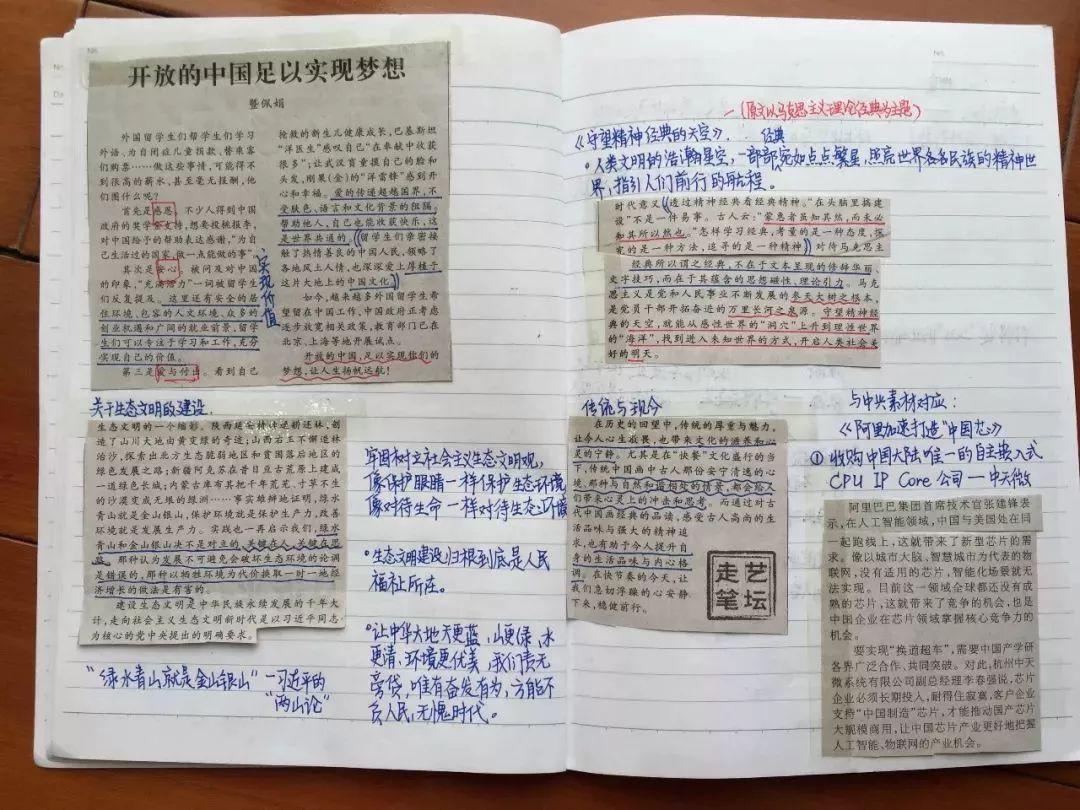 开放的中国足以实现梦想
暨佩娟
外国留学生们帮学生们学习
外语、为自闭症儿童捐款、替乘客
们购票……做这些事情,可能得不
到很高的薪水,甚至毫无报酬,他
们图什么呢?
首先是感恩。不少人得到中国
政府的奖学金支持,想要投桃报李,
对中国给予的帮助表达感谢,“为自
己生活过的国家做一点能做的事”。
其次是安心。被问及对中国
的印象,“充满活力”一词被留学生
们反复提及。这里还有安全的居
住环境、包容的人文环境、众多的
创业机遇和广阔的就业前景,留学
生们可以专注于学习和工作,充分
实现自己的价值。
第三是爱与付出。看到自己
实现价值
抢救的新生儿健康成长,巴基斯坦
“洋医生”感叹自己“在奉献中收获
很多”;让武汉育童摸自己的脸和
头发,刚果(金)的“洋雷锋”感到开
心和幸福。爱的传递超越国界,不
受肤色、语言和文化背景的阻隔。
帮助他人,自己也能收获快乐,这
是世界共通的。留学生们亲密接
触了热情善良的中国人民,领略了
各地风土人情,也深深爱上厚植于
这片大地上的中国文化。
如今,越来越多外国留学生希
望留在中国工作,中国政府正考虑
逐步放宽相关政策,教育部门已在
北京、上海等地开展试点。
开放的中国,足以实现你们的
梦想,让人生扬帆远航!
关于生态文明的建设.
生态文明的一个缩影。陕西延安持续退耕还林,创
造了山川大地由黄变绿的奇迹;山西右玉不懈造林
治沙,探索出北方生态脆弱地区和贫困落后地区的
绿色发展之路;新疆阿克苏在昔日亘古荒原上建成
一道绿色长城;内蒙古库布其把千年荒芜、寸草不生
的沙漠变成无垠的绿洲……事实雄辩地证明,绿水
青山就是金山银山,保护环境就是保护生产力,改善
环境就是发展生产力。实践也一再启示我们,绿水
青山和金山银山决不是对立的,关键在人,关键在思
路。那种认为发展不可避免会破坏生态环境的论调
是错误的,那种以牺牲环境为代价换取一时一地经
济增长的做法是有害的。
建设生态文明是中华民族永续发展的千年大
计,走向社会主义生态文明新时代是以习近平同志
为核心的党中央提出的明确要求。
“绿水青山就是金山银山”—习近平的
“两山论”
牢固树立社会主义生态文明观,
像保护眼睛一样保护生态环境
像对待生命一样对待生态环境
·生态文明建设归根到底是人民
福祉所在。
·让中华大地天更蓝,山更绿,水
更清,环境更优美,我们责无
旁贷,唯有奋发有为,方能不
负人民,无愧时代。
—(原文以马克思主义理论经典为主题)
《守望精神经典的天空》.
经典
·人类文明的浩瀚星空,一部部宛如点点繁星,照亮世界各民族的精神世
界,指引人们前行的航程。
时代意义(透过精神经典看经典精神。“在头脑里搞建
设”不是一件易事。古人云:“蒙愚者虽知其然,而未必
知其所以然也。”怎样学习经典,考量的是一种态度,探
究的是一种方法,追寻的是一种精神)对待马克思主
经典所以谓之经典,不在于文本呈现的修辞华丽
文字技巧,而在于其蕴含的思想磁性、理论引力。马克
思主义是党和人民事业不断发展的参天大树之根本,
是党员干部开拓奋进的万里长河之泉源。守望精神经
典的天空,就能从感性世界的“洞穴”上升到理性世界
的“海洋”,找到进入未知世界的方式,开启人类社会美
好的明天。
传统与现今
在历史的回望中,传统的厚重与魅力,
让今人心生敬畏,也带来文化的滋养和心
灵的宁静。尤其是在“快餐”文化盛行的当
下,传统中国画中古人那份安宁清逸的心
境,那种与自然和谐相处的情景,都会给人
们带来心灵上的冲击和思考。而通过对古
代中国画经典的品读,感受古人高尚的生
活品味与强大的精神追
求,也有助于今人提升自
身的生活品味与内心格
调。在快节奏的今天,让
我们急切浮躁的心安静
下来,稳健前行。
艺坛
走笔
与中央素材对应:
《阿里加速打造“中国芯”》
① 收购中国大陆唯一的自主嵌入式
CPU IP Core 公司—中天微
阿里巴巴集团首席技术官张建锋表
示,在人工智能领域,中国与美国处在同
一起跑线上,这就带来了新型芯片的需
求。像以城市大脑、智慧城市为代表的物
联网,没有适用的芯片,智能化场景就无
法实现。目前这一领域全球都还没有成
熟的芯片,这就带来了竞争的机会,也是
中国企业在芯片领域掌握核心竞争力的
机会。
要实现“换道超车”,需要中国产学研
各界广泛合作、共同突破。对此,杭州中天
微系统有限公司副总经理李春强说,芯片
企业必须长期投入,耐得住寂寞,客户企业
支持“中国制造”芯片,才能推动国产芯片
大规模商用,让中国芯片产业更好地把握
人工智能、物联网的产业机会。